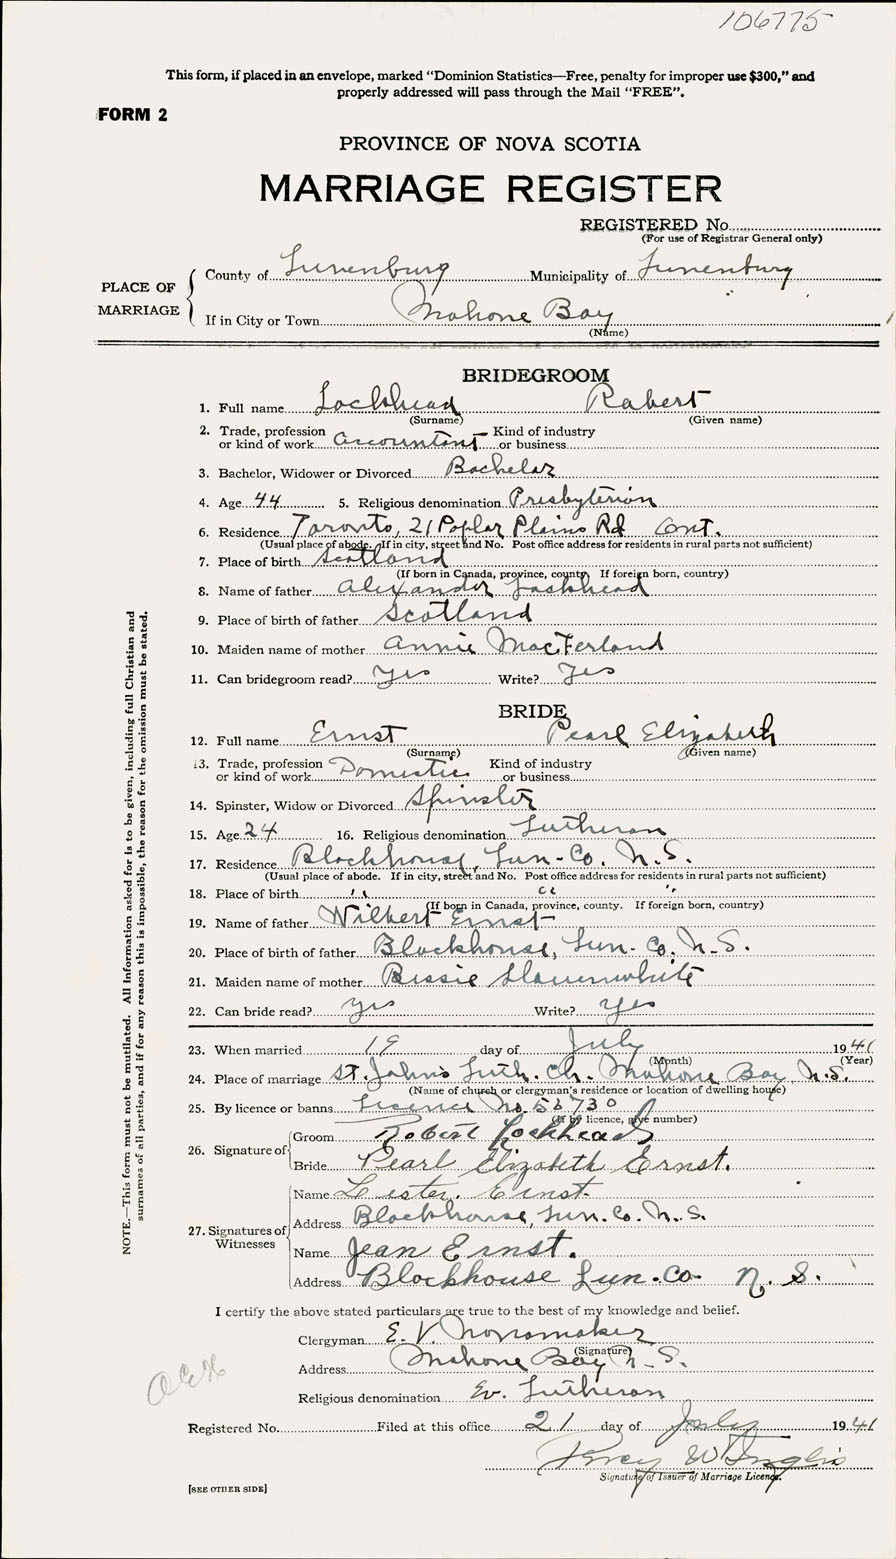 106775
This form, if placed in an envelope, marked "Dominion Statistics—Free, penalty for improper use $300," and
properly addressed will pass through the Mail "FREE".
FORM 2
PROVINCE OF NOVA SCOTIA
MARRIAGE REGISTER
REGISTERED No.
(For use of Registrar General only)
PLACE OF MARRIAGE
County of Lunenburg Municipality of Lunenburg
If in City or Town Mahone Bay
(Name)
BRIDEGROOM
1. Full name Lockhead Robert
(Surname) (Given name)
2. Trade, profession or kind of work accountant Kind of industry or business
3. Bachelor, Widower or Divorced Bachelor
4. Age 44 5. Religious denomination Presbyterian
6. Residence Toronto, 21 Poplar Plains Rd Ont.
(Usual place of abode. If in city, street and No. Post office address for residents in rural parts not sufficient)
7. Place of birth Scotland
(If born in Canada, province, county. If foreign born, country)
8. Name of father Alexander Lockhead
9. Place of birth of father Scotland
10. Maiden name of mother Annie MacFerland
11. Can bridegroom read? Yes Write? Yes
BRIDE
12. Full name Ernst Pearl Elizabeth
(Surname) (Given name)
13. Trade, profession or kind of work Domestic Kind of industry or business
14. Spinster, Widow or Divorced Spinster
15. Age 24 16. Religious denomination Lutheran
17. Residence Blockhouse, Lun-Co. N.S.
(Usual place of abode. If in city, street and No. Post office address for residents in rural parts not sufficient)
18. Place of birth " " "
(If born in Canada, province, county. If foreign born, country)
19. Name of father Wilbert Ernst
20. Place of birth of father Blockhouse, Lun. Co. N.S.
21. Maiden name of mother Bessie Slauenwhite
22. Can bride read? yes Write? yes
23. When married 19 day of July 1941
(Month) (Year)
24. Place of marriage St. John's Luth. Ch. Mahone Bay, N.S.
(Name of church or clergyman's residence or location of dwelling house)
25. By licence or banns Licence No.
(If by licence, give number)
26. Signature of
Groom Robert Lockhead
Bride Pearl Elizabeth Ernst.
27. Signatures of Witnesses
Name Lester. Ernst.
Address Blockhouse, Lun. Co. N.S.
Name Jean Ernst.
Address Blockhouse Lun. Co. N. S.
I certify the above stated particulars are true to the best of my knowledge and belief.
Clergyman E. V. Nonamaker
(Signature)
Address Mahone Bay N.S.
Religious denomination Ev. Lutheran
Registered No. Filed at this office 21 day of July 1941
Percy W Inglis
Signature of Issuer of Marriage Licence.
[SEE OTHER SIDE]
NOTE.—This form must not be mutilated. All information asked for is to be given, including full Christian and
surnames of all parties, and if for any reason this is impossible, the reason for the omission must be stated.